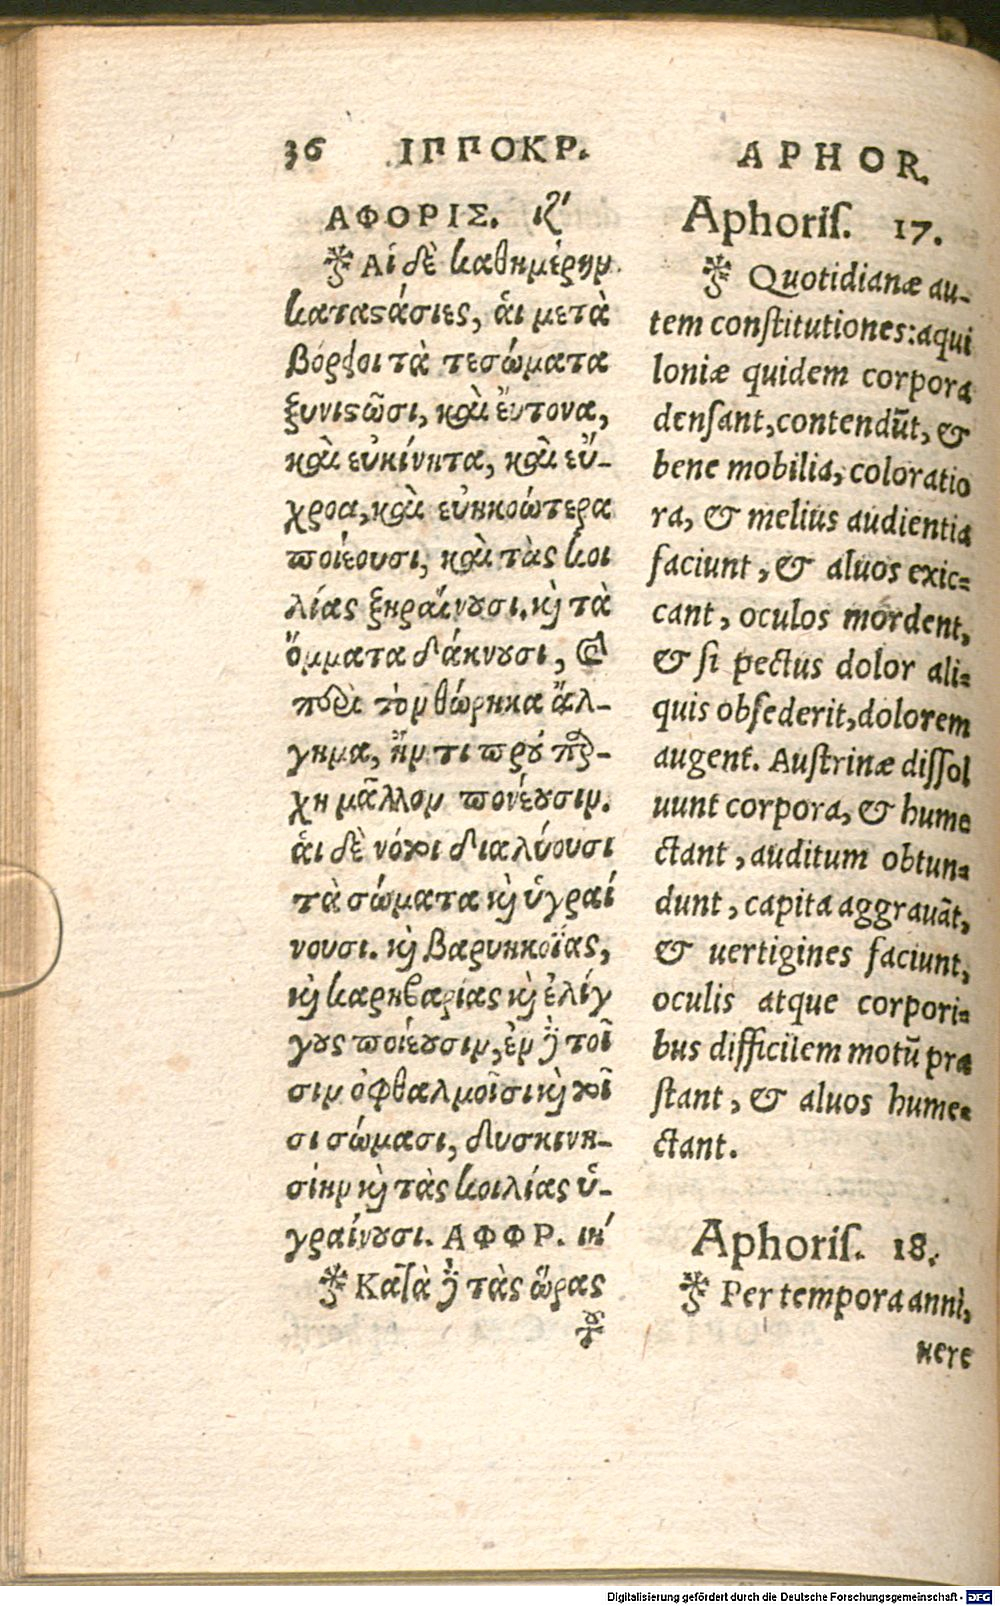 36 ΙΠΠΟΚΡ.
ΑΦΟΡΙΣ. ιζ'
Αἱ δὲ καθημέριν
καταϛάσιες, ἃι μετὰ
βόρειοι τὰ τε σώματα
ξυνιϛῶσι, καὶ ἔυτονα,
καὶ εὐκίνητα, καὶ εὔ-
χροα, καὶ εὐηκοώτερα
ποιέουσι, καὶ τὰς κοι
λίας ξηραίνουσι. καὶ τὰ
ὄμματα δάκνουσι, καὶ
περὶ τὸν θώρηκα ἄλ-
γημα, ἤν τι προϋπάρ-
χη μᾶλλον πονέουσιν.
ἁι δὲ νότιοι διαλύουσι
τὰ σώματα καὶ ὑγραί
νουσι. καὶ βαρυηκοΐας,
καὶ καρηβαρίας καὶ ἐλίγ
γους ποιέουσιν, ἐν δὲ τοῖ
σιν ὀφθαλμοῖσι καὶ τοῖ
σι σώμασι, δυσκινη-
σίην καὶ τὰς κοιλίας ὑ-
γραίνουσι. ΑΦΦΡ. ιη'
Κατὰ δὲ τὰς ὥρας
τοῦ
APHOR.
Aphoris. 17.
Quotidianæ au-
tem constitutiones: aqui
loniæ quidem corpora
densant, contendūt, &
bene mobilia, coloratio
ra, & melius audientia
faciunt, & aluos exic-
cant, oculos mordent,
& si pectus dolor ali-
quis obsederit, dolorem
augent. Austrinæ dissol
uunt corpora, & hume
ctant, auditum obtun-
dunt, capita aggrauāt,
& uertigines faciunt,
oculis atque corpori-
bus difficilem motū præ
stant, & aluos hume-
ctant.
Aphoris. 18.
Per tempora anni,
uere
Digitalisierung gefördert durch die Deutsche Forschungsgemeinschaft - DFG